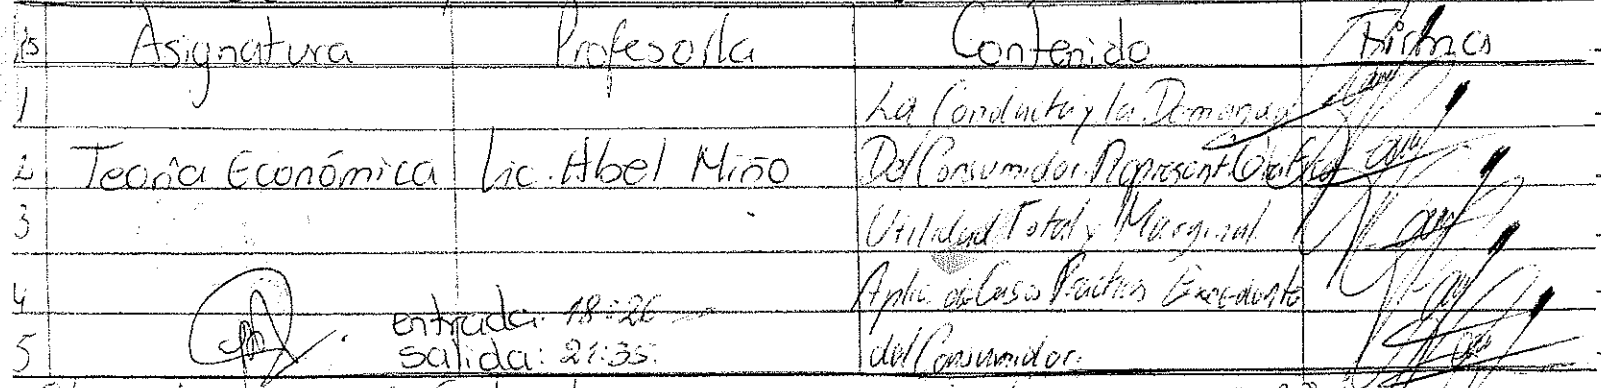 Asignatura Profesor/a Contenido Firmas
1 La Conducta y la Demanda
2 Teoría Económica Lic. Abel Miño Del Consumidor. Represent.
3 Utilidad Total y Marginal
4 Aplic. de Casos Excedente
entrada: 18:26
5 salida: 21:35. del Consumidor.